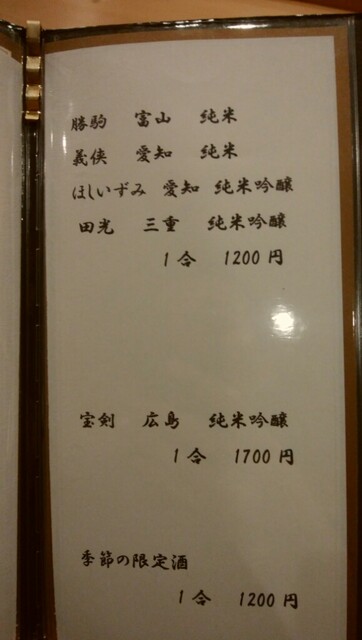 勝駒 富山 純米
義侠 愛知 純米
ほしいずみ 愛知 純米吟醸
田光 三重 純米吟醸
1合 1200円
宝剣 広島 純米吟醸
1合 1700円
季節の限定酒
1合 1200円